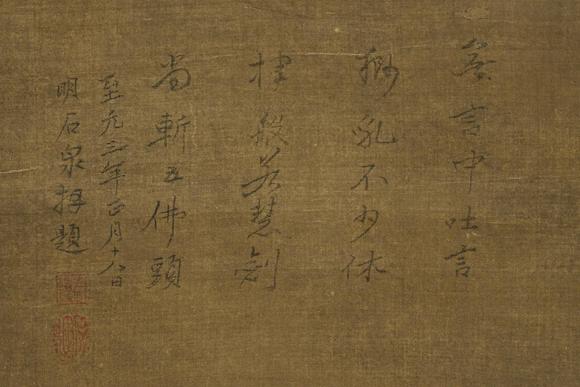 無言中吐言
不少休
般若慧劍
斬五佛頭
至元三年正月十八日
明石泉題